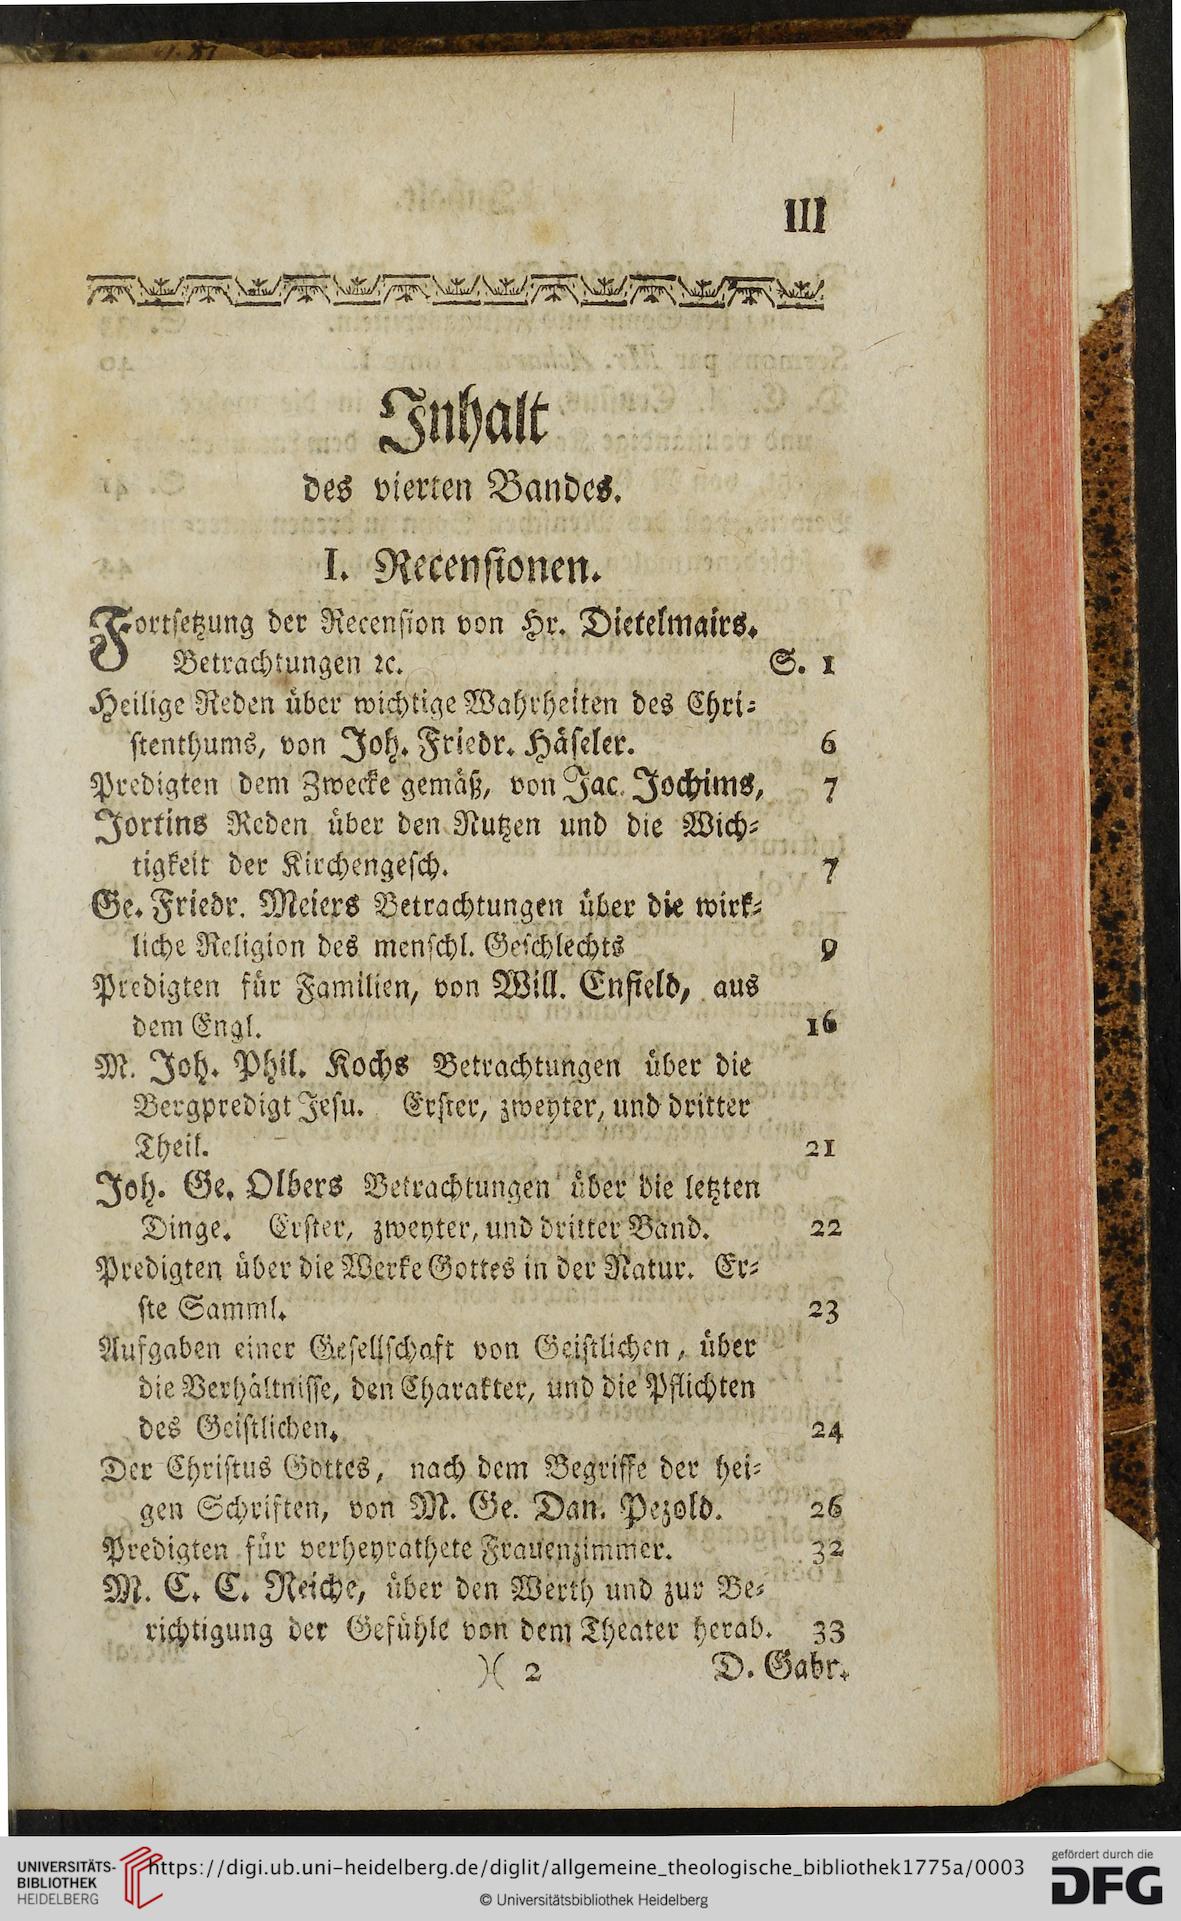 III
Inhalt
des vierten Bandes.
I. Recensionen.
Fortsetzung der Recension von Hr. Dietelmairs.
Betrachtungen ꝛc. S. 1
Heilige Reden über wichtige Wahrheiten des Chri-
stenthums, von Joh. Friedr. Häseler. 6
Predigten dem Zwecke gemäß, von Jac. Jochims, 7
Jortins Reden über den Nutzen und die Wich-
tigkeit der Kirchengesch. 7
Ge. Friedr. Meiers Betrachtungen über die wirk-
liche Religion des menschl. Geschlechts 9
Predigten für Familien, von Will. Enfield, aus
dem Engl. 16
M. Joh. Phil. Kochs Betrachtungen über die
Bergpredigt Jesu. Erster, zweyter, und dritter
Theil. 21
Joh. Ge. Olbers Betrachtungen über die letzten
Dinge. Erster, zweyter, und dritter Band. 22
Predigten über die Werke Gottes in der Natur. Er-
ste Samml. 23
Aufgaben einer Gesellschaft von Geistlichen, über
die Verhältnisse, den Charakter, und die Pflichten
des Geistlichen. 24
Der Christus Gottes, nach dem Begriffe der hei-
gen Schriften, von M. Ge. Dan. Pezold. 26
Predigten für verheyrathete Frauenzimmer. 32
M. C. C. Reiche, über den Werth und zur Be-
richtigung der Gefühle von dem Theater herab. 33
)( 2 D. Gabr.
UNIVERSITÄTS-
BIBLIOTHEK
HEIDELBERG
https://digi.ub.uni-heidelberg.de/diglit/allgemeine_theologische_bibliothek1775a/0003
© Universitätsbibliothek Heidelberg
gefördert durch die
DFG